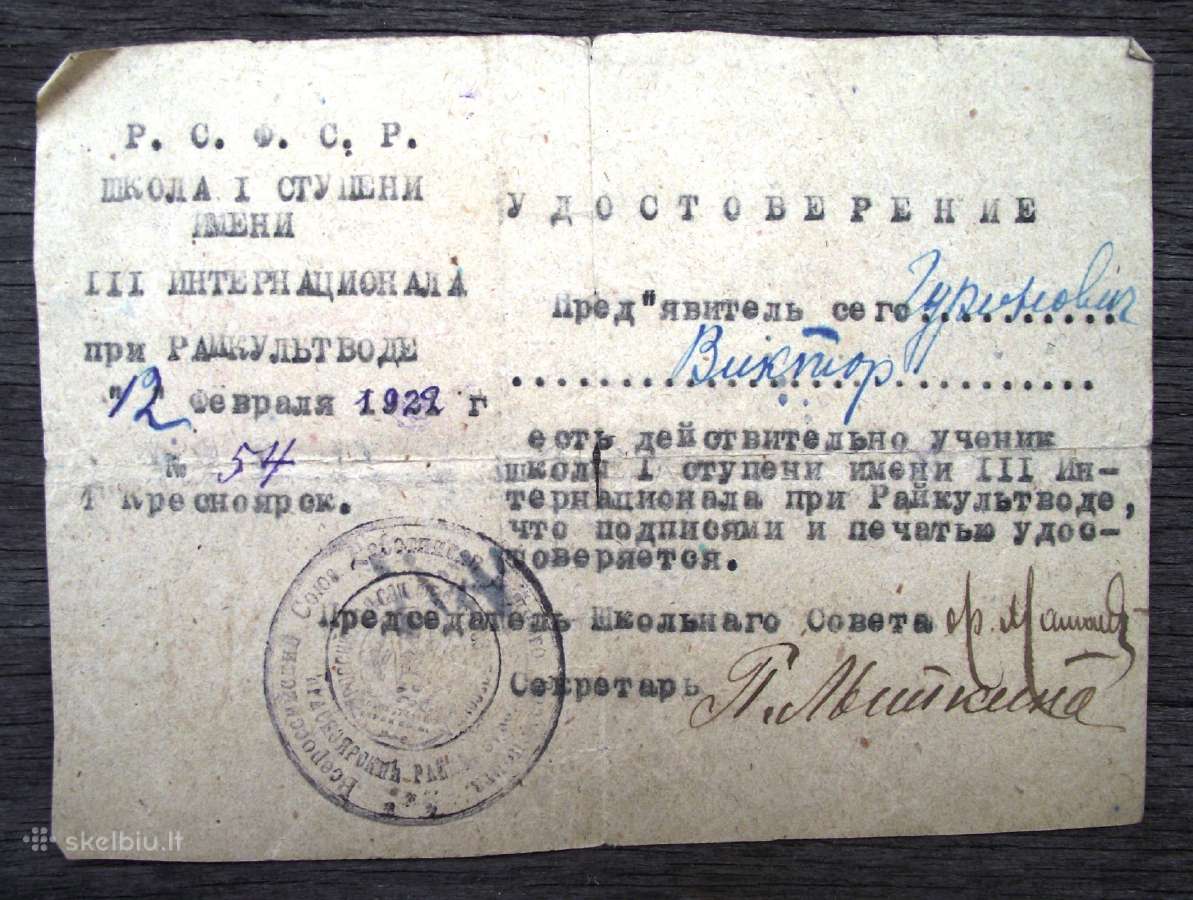 Р. С. Ф. С. Р.
ШКОЛА I СТУПЕНИ
ИМЕНИ
III ИНТЕРНАЦИОНАЛА
при РАЙКУЛЬТВОДЕ
"12" Февраля 1922 г
№ 54
г Кресноярск.
УДОСТОВЕРЕНИЕ
Пред"явитель сего Гуринович
Виктор
есть действительно ученик
школы I ступени имени III Ин-
тернационала при Райкультводе,
что подписями и печатью удос-
товеряется.
Председатель Школьнаго Совета
Секретарь П. Мыткина
Всероссийский Союз
КРАСНОЯРСКИЙ
skelbiu.lt